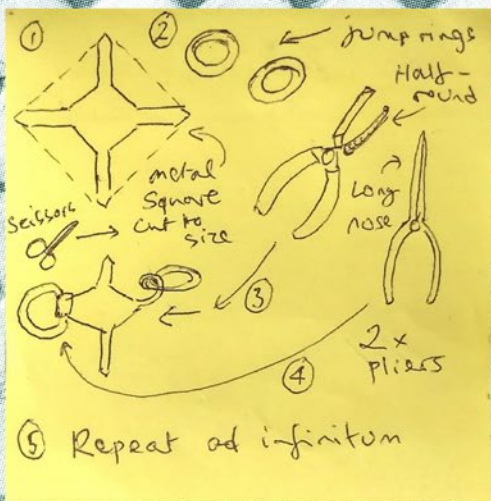 ①
②
jump rings
Half-
round
metal
square
cut to
size
Scissors
Long
nose
③
2x
pliers
④
⑤ Repeat ad infinitum